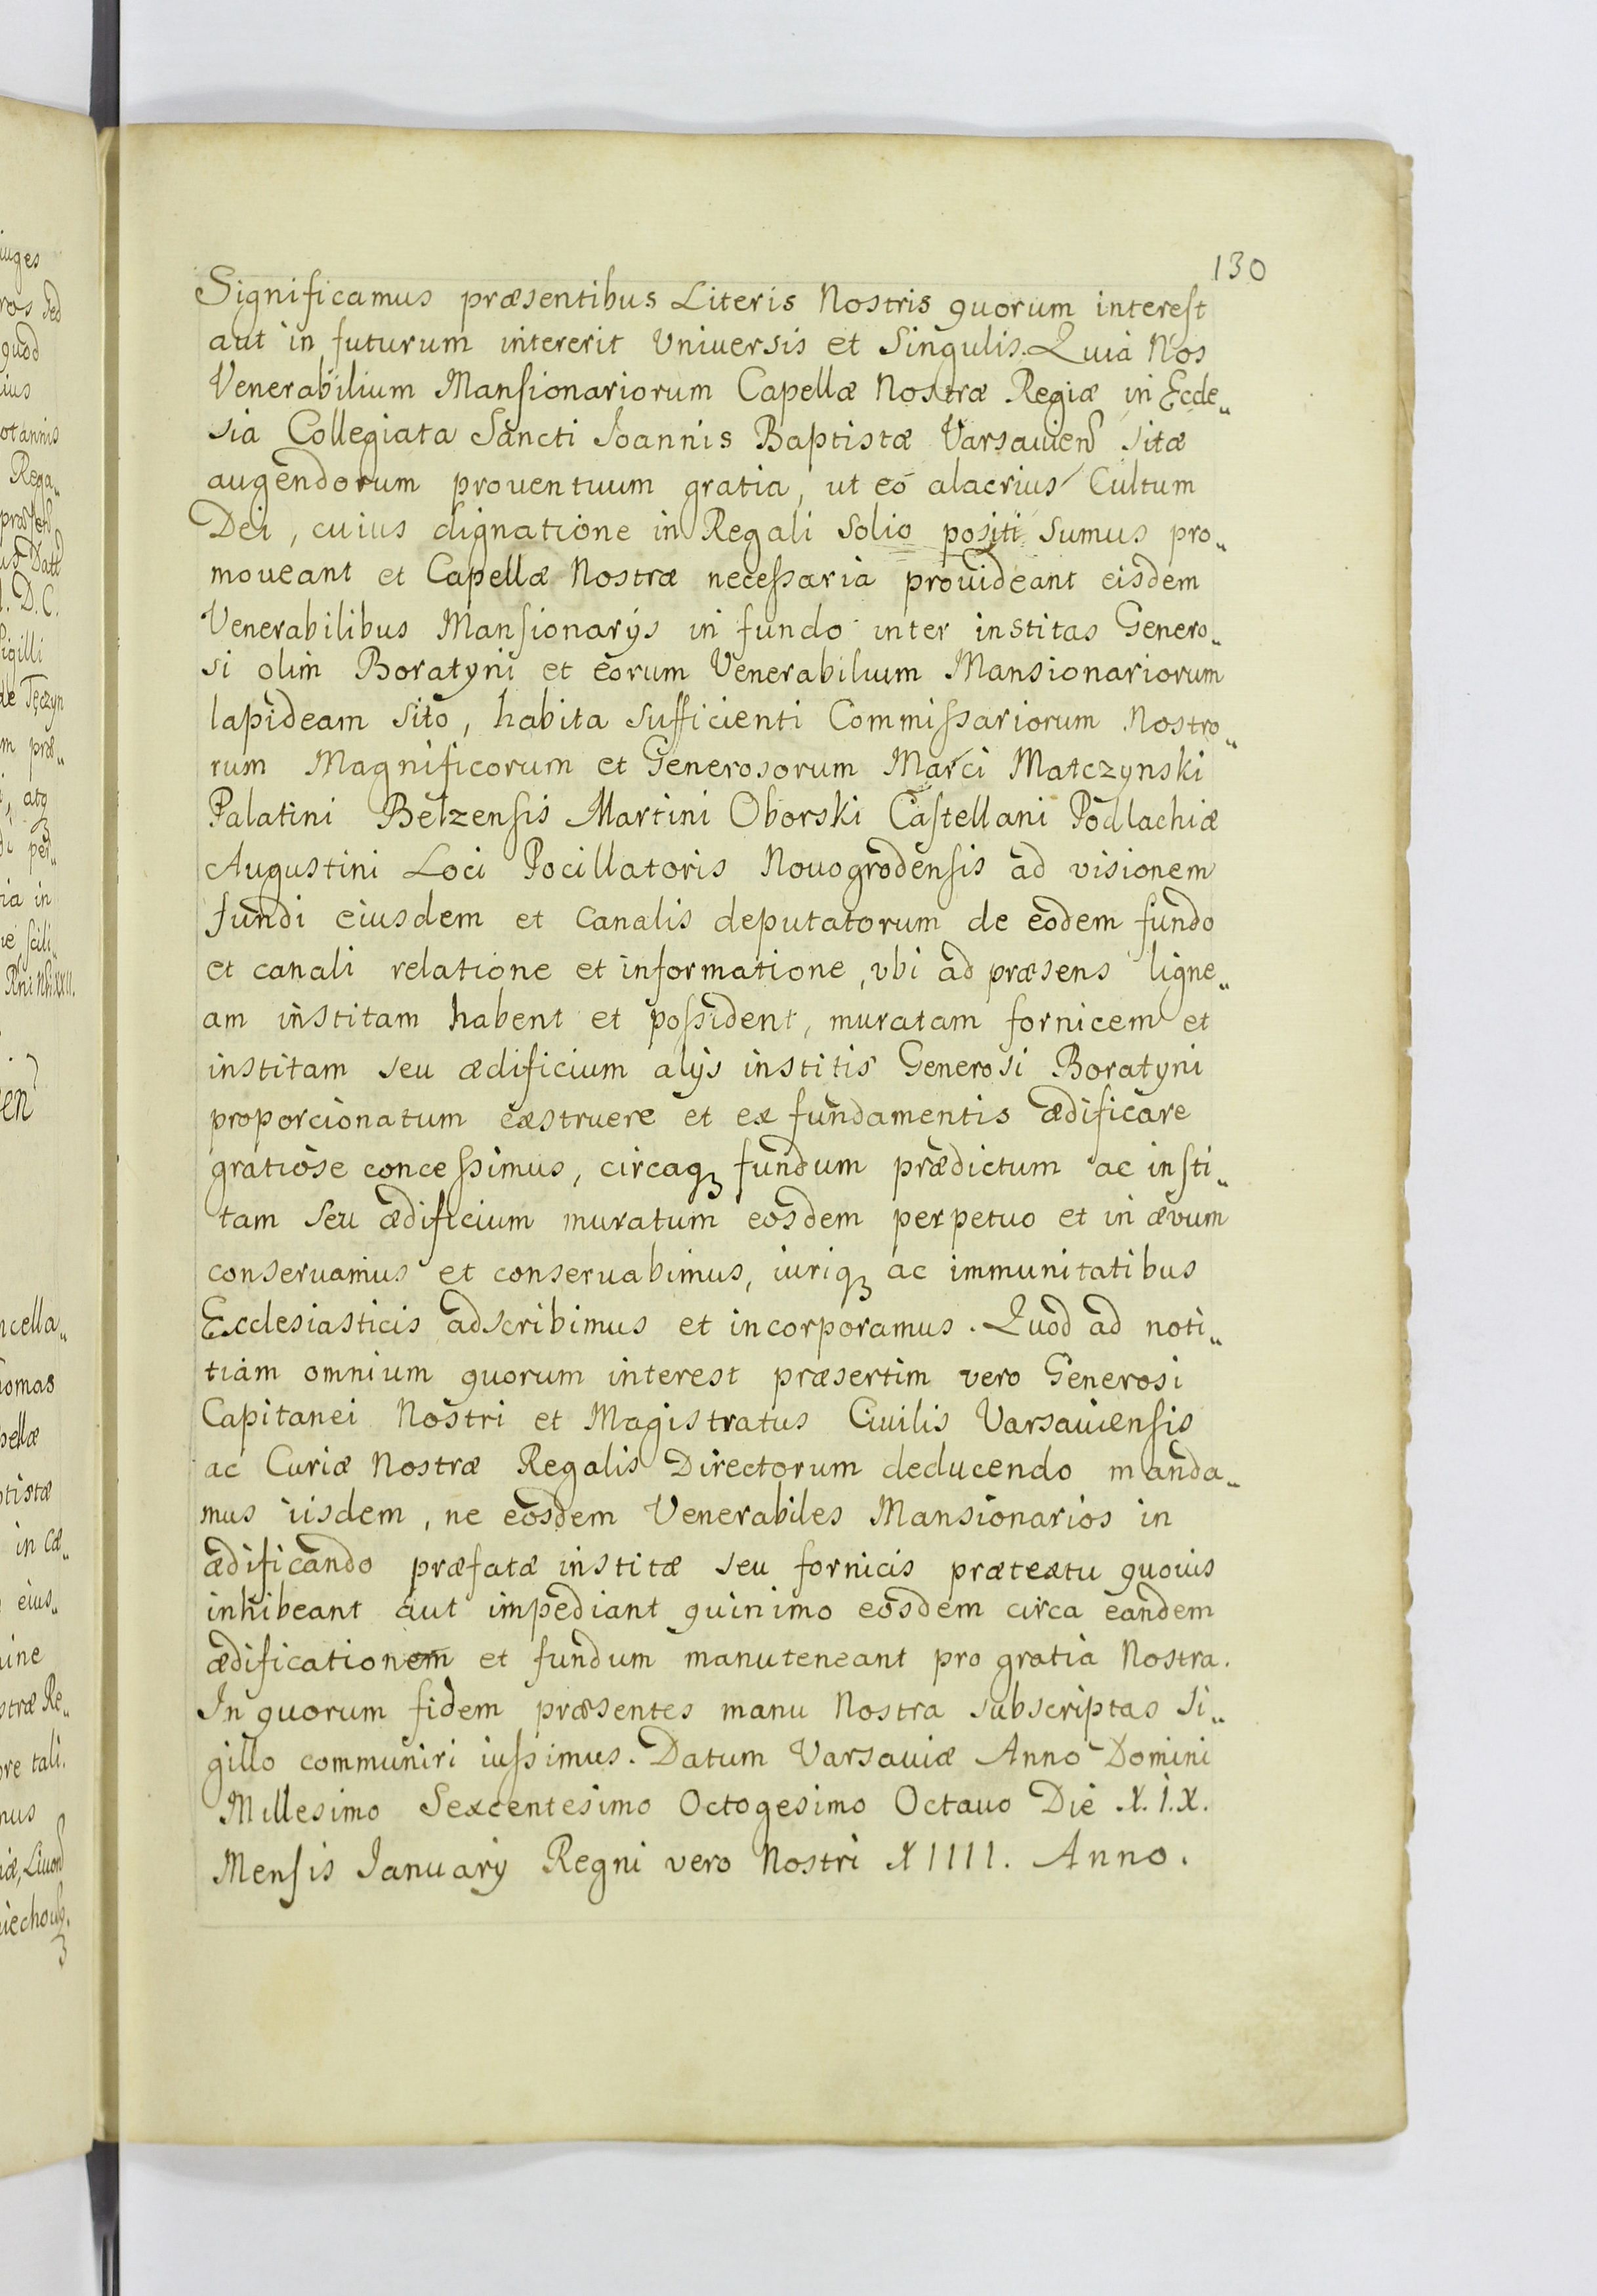 130
Significamus præsentibus Literis Nostris quorum interest
aut in futurum intererit Vniuersis et Singulis. Quia Nos
Venerabilium Mansionariorum Capellæ Nostræ Regiæ in Eccle„
sia Collegiata Sancti Ioannis Baptistæ Varsauien̄ sitæ
augendorum prouentuum gratia, ut eó alacrius Cultum
Dei, cuius dignatione in Regali Solio positi sumus pro„
moueant et Capellæ Nostræ necessaria prouideant eisdem
Venerabilibus Mansionarÿs in fundo inter institas Genero„
si olim Boratyni et eorum Venerabilium Mansionariorum
lapideam sito, habita sufficienti Commissariorum Nostro„
rum Magnificorum et Generosorum Marci Matczynski
Palatini Belzensis Martini Oborski Castellani Podlachiæ
Augustini Loci Pocillatoris Nouogrodensis ad visionem
fundi eiusdem et Canalis deputatorum de eodem fundo
et canali relatione et informatione, vbi ad præsens ligne„
am institam habent et possident, muratam fornicem et
institam seu ædificium alÿs institis Generosi Boratyni
proporcionatum exstruere et ex fundamentis ædificare
gratiose concessimus, circaqꝫ fundum prædictum ac insti„
tam seu ædificium muratum eosdem perpetuo et in ævum
conseruamus et conseruabimus, iuriqꝫ ac immunitatibus
Ecclesiasticis adscribimus et incorporamus. Quod ad noti„
tiam omnium quorum interest præsertim vero Generosi
Capitanei Nostri et Magistratus Ciuilis Varsauiensis
ac Curiæ Nostræ Regalis Directorum deducendo manda„
mus iisdem, ne eosdem Venerabiles Mansionarios in
ædificando præfatæ institæ seu fornicis prætextu quouis
inhibeant aut impediant quinimo eosdem circa eandem
ædificationem et fundum manuteneant pro gratia Nostra.
In quorum fidem præsentes manu Nostra subscriptas si„
gillo communiri iussimus. Datum Varsauiæ Anno Domini
Millesimo Sexcentesimo Octogesimo Octauo Die X.I.X.
Mensis Ianuarÿ Regni vero Nostri XIIII. Anno.